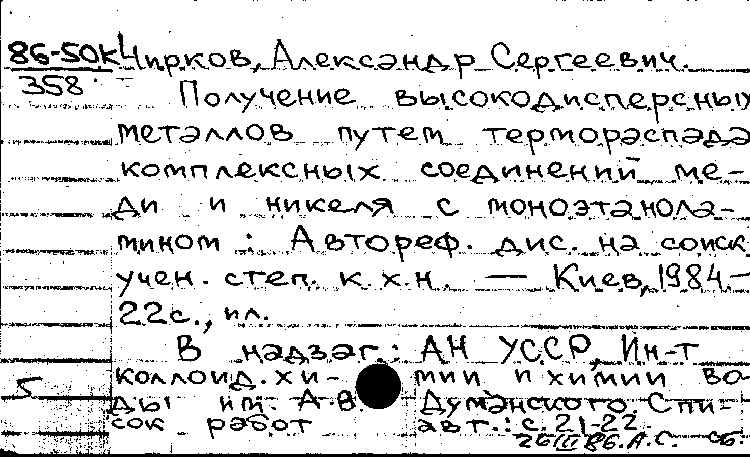 86-50к Чирков, Александр Сергеевич.
358
Получение высокодисперсных
металлов путем терморэспада
комплексных соединений ме-
ди и никеля с моноэтанола-
мином : Автореф. дис. на соиск.
учен. степ. к.х.н. — Киев, 1984.-
22с., ил.
В надзаг.: АН УССР, Ин-т
коллоид. хи- мии и химии во-
5 ды им. А.В. Думанского. Спи-
сок работ авт.: с. 21-22.
26 III 86. А.С. сб.